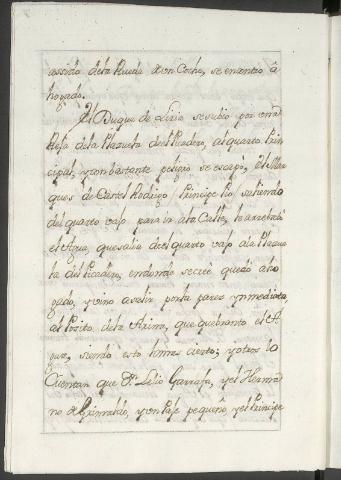 assido dela Rueda de un Coche, se encontro â
hogado.
El Duque de Liria se subio por una
Rexa dela Plazuela del Picadero, al quarto Prin
cipal, y con bastante peligro se escapò, el Mar
ques de Castel Rodrigo / Principe Pio saliendo
del quarto vajo para ir ala Calle, lo arrebatò
el Agua, que salia del quarto vajo ala Plazue
la del Picadero, en donde se creè quedò aho
gado, y vino a salir por la pared ynmediata
al Posito dela Arina, que quebranto el A
gua, siendo esto lo mas cierto; y otros lo
Cuentan que Dn. Lelio Garrafa, y el Herma
no de Grimaldo, y un Paje pequeño, y el Principe